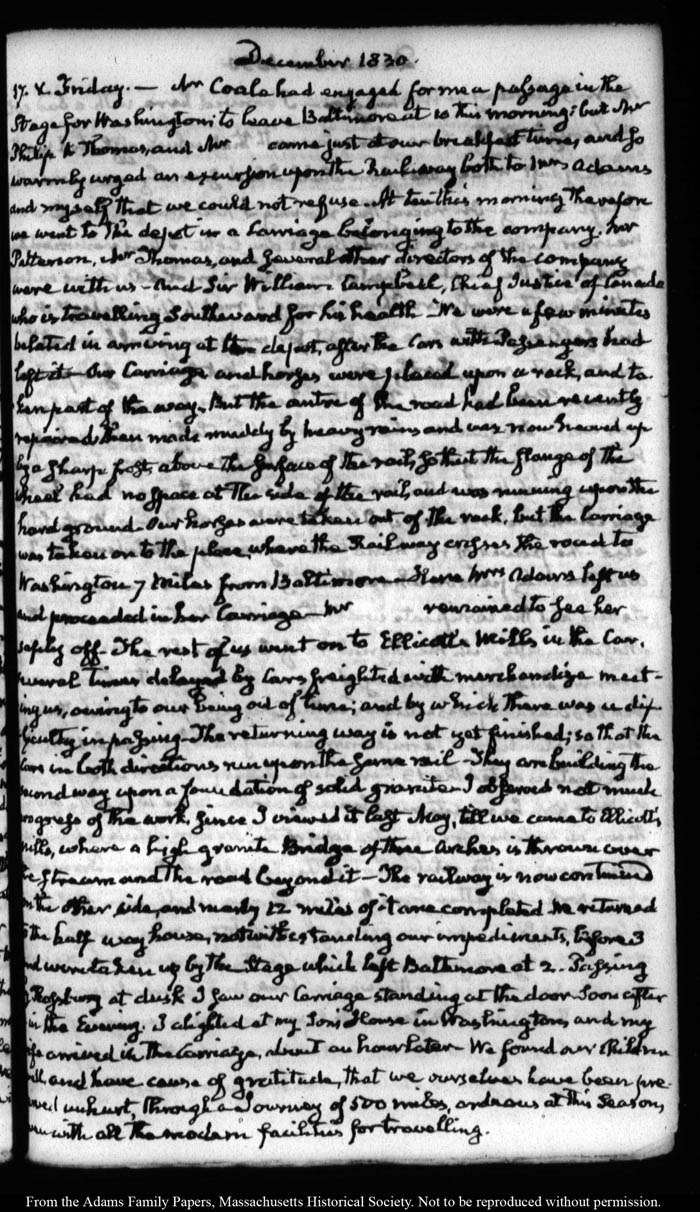 December 1830.
17. V. Friday. — Mr Coale had engaged for me a passage in the
Stage for Washington; to leave Baltimore at 10 this morning: but Mr
Philip E Thomas, and Mr came just at our breakfast time, and so
warmly urged an excursion upon the Railway both to Mrs Adams
and myself that we could not refuse. At ten this morning therefore
we went to the depot in a Carriage belonging to the company. Mr
Patterson, Mr Thomas, and several other directors of the company
were with us – And Sir William Campbell, Chief Justice of Canada
who is travelling Southward for his health – We were a few minutes
belated in arriving at the depot, after the Cars with Passengers had
left it – Our Carriage and horses were placed upon a rack, and ta-
ken part of the way. But the centre of the road had been recently
repaired then made muddy by heavy rains and was now heaved up
by a sharp frost, above the surface of the rail, so that the flange of the
wheel had no space at the side of the rail, and was running upon the
hard ground. Our horses were taken out of the rack, but the Carriage
was taken on to the place, where the Railway crosses the road to
Washington 7 Miles from Baltimore – Here Mrs Adams left us
and proceeded in her Carriage – Mr remained to see her
safely off – The rest of us went on to Ellicott's Mills in the Car.
several times delayed by Cars freighted with merchandize meet-
ing us, owing to our being out of time; and by which there was a dif-
ficulty in passing – The returning way is not yet finished; so that the
Cars in both directions run upon the same rail – They are building the
second way upon a foundation of solid granite – I observed not much
progress of the work, since I viewed it last May, till we came to Ellicott's
Mills, where a high granite Bridge of three Arches is thrown over
the stream and the road beyond it – The railway is now continued
on the other side, and nearly 12 miles of it are completed. We returned
to the half way house, notwithstanding our impediments, before 3
and were taken up by the Stage which left Baltimore at 2. Passing
by Rossburg at dusk I saw our Carriage standing at the door. Soon after
in the Evening. I alighted at my Son's House in Washington, and my
wife arrived in the Carriage, about an hour later – We found our Children
well and have cause of gratitude, that we ourselves have been pre-
served unhurt, through a Journey of 500 miles, arduous at this Season,
even with all the modern facilities for travelling.
From the Adams Family Papers, Massachusetts Historical Society. Not to be reproduced without permission.